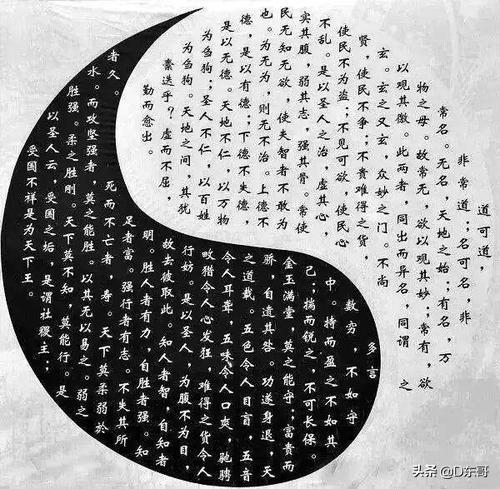 道可道，
非常道；名可名，非
常名。无名，天地之始；有名，万
物之母。故常无，欲以观其妙；常有，欲
以观其徼。此两者，同出而异名，同谓之
玄。玄之又玄，众妙之门。不尚
贤，使民不争；不贵难得之货，
使民不为盗；不见可欲，使民心
不乱。是以圣人之治，虚其心，
实其腹，弱其志，强其骨。常使
民无知无欲，使夫智者不敢为
也。为无为，则无不治。上德不
德，是以有德；下德不失德，
是以无德。天地不仁，以万物
为刍狗；圣人不仁，以百姓
为刍狗。天地之间，其犹
迭乎？虚而不屈，
而愈出。
多言
数穷，不如守
中。持而盈之，不如其
己；揣而锐之，不可长保。
金玉满堂，莫之能守；富贵而
骄，自遗其咎。功遂身退，天
之道哉。五色令人目盲，五音
令人耳聋，五味令人口爽，驰骋
畋猎令人心发狂，难得之货令人
行妨。是以圣人，为腹不为目，
故去彼取此。知人者智，自知者
明。胜人者有力，自胜者强。知
足者富。强行者有志。不失其所
者久。死而不亡者，寿。天下莫柔弱於
水。而攻坚强者，莫之能胜。以其无以易之。弱之
胜强。柔之胜刚。天下莫不知，莫能行。是
以圣人云，受国之垢，是谓社稷主；
受国不祥是为天下王。
头条 @D东哥